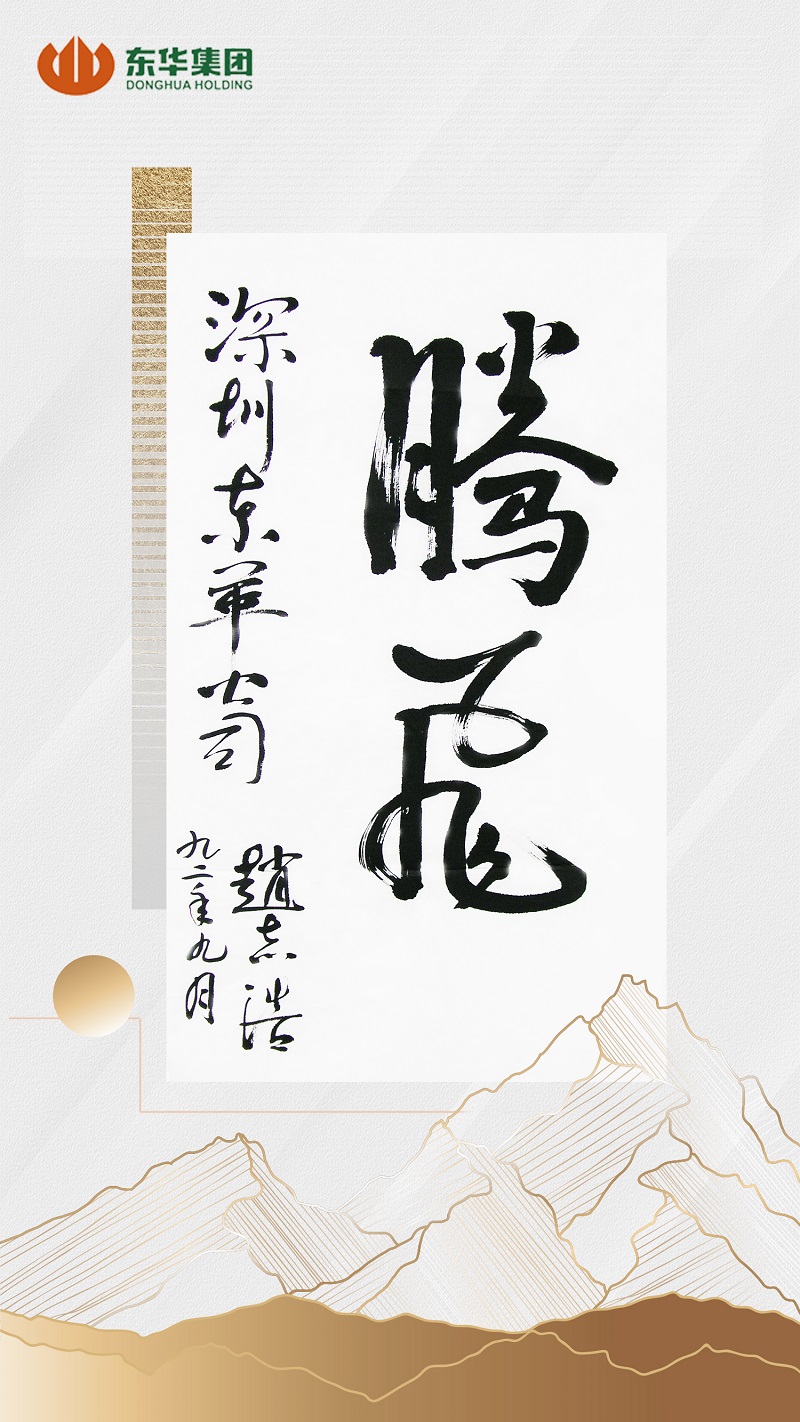 东华集团
DONGHUA HOLDING
腾飞
深圳东华公司
赵志浩
九二年九月